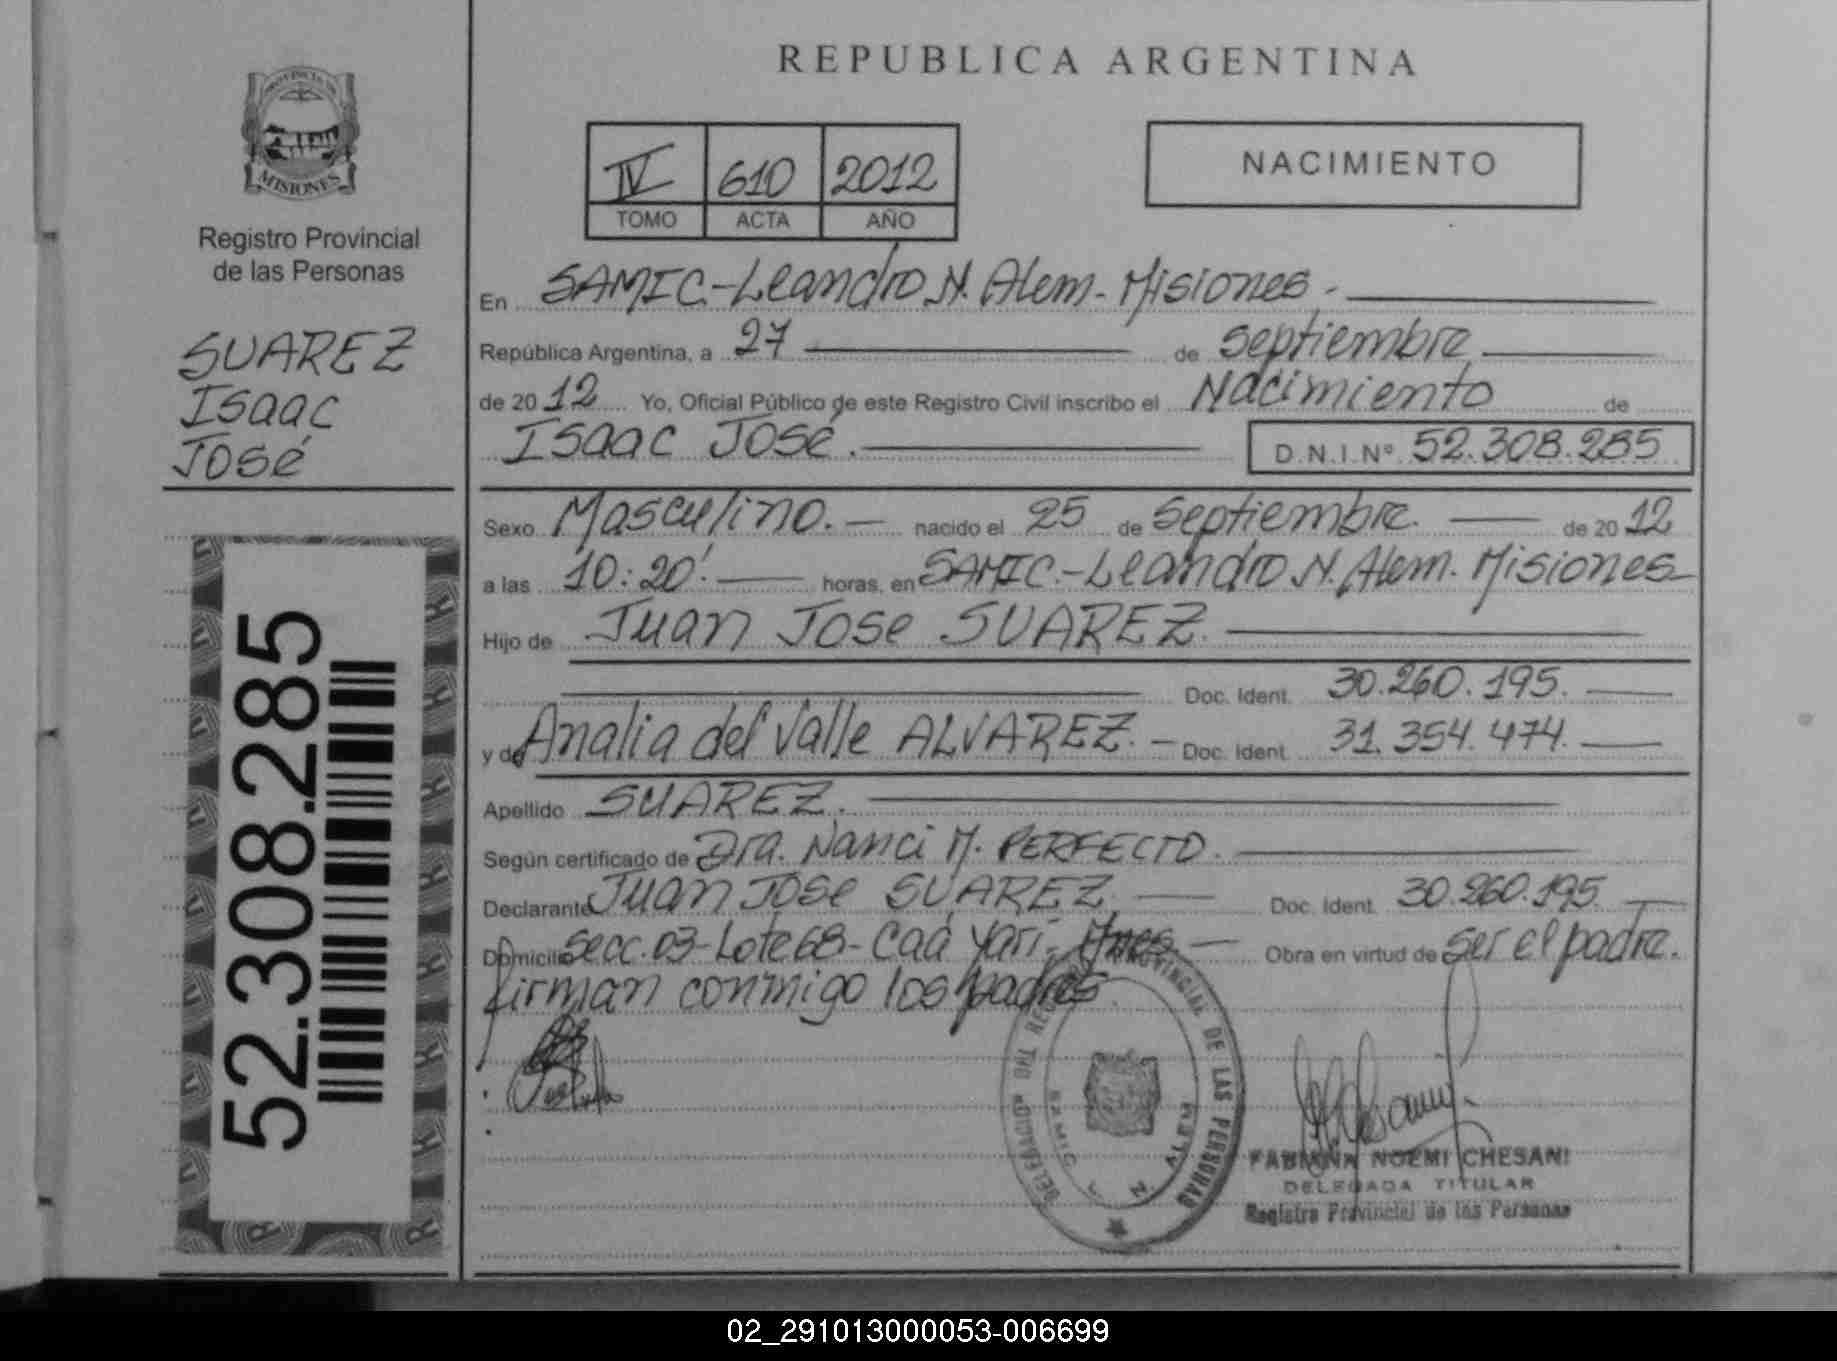 REPUBLICA ARGENTINA
PROVINCIA DE
MISIONES
Registro Provincial
de las Personas
SUAREZ
Isaac
José
52.308.285
IV 610 2012
TOMO ACTA AÑO
NACIMIENTO
En SAMIC.-Leandro N. Alem.- Misiones.-
República Argentina, a 27 de septiembre
de 2012 Yo, Oficial Público de este Registro Civil inscribo el Nacimiento de
Isaac José. D.N.I.Nº 52.308.285
Sexo Masculino. nacido el 25 de septiembre. de 2012
a las 10:20'. horas, en SAMIC.-Leandro N. Alem. Misiones
Hijo de Juan Jose SUAREZ.
Doc. Ident. 30.260.195.
y de Analia del Valle ALVAREZ. Doc. Ident. 31.354.474.
Apellido SUAREZ.
Según certificado de Dra. Nanci M. PERFECTO.
Declarante Juan Jose SUAREZ Doc. Ident. 30.260.195
Domicilio Secc. 03-Lote 68- Caá Yarí, Mnes Obra en virtud de ser el padre.
firman conmigo los padres.
DELEGACION DEL REGISTRO PROVINCIAL DE LAS PERSONAS
SAMIC. L. N. ALEM
FABIANA NOEMI CHESANI
DELEGADA TITULAR
Registro Provincial de las Personas
02_291013000053-006699